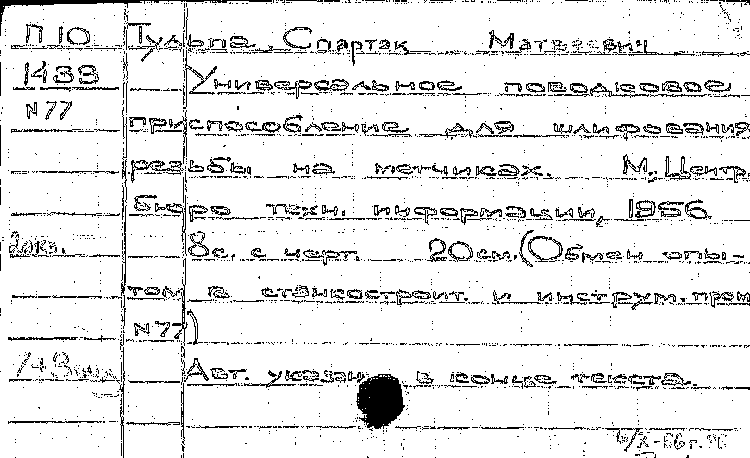 П 10 Тульпа, Спартак Матвеевич
1433 Универсальное поводковое
N 77
приспособление для шлифования
резьбы на метчиках. М., Центр.
бюро техн. информации, 1956.
2 экз. 8 с. с черт. 20 см. (Обмен опы-
том в станкостроит. и инструм. пром
N 77)
Авт. указан в конце текста.